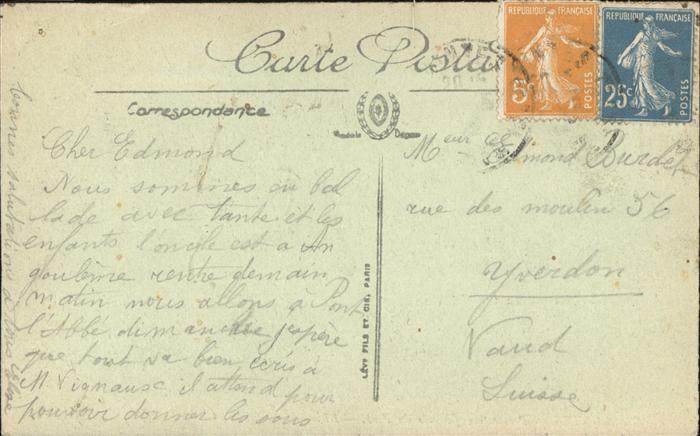 Carte Postale
RÉPUBLIQUE FRANÇAISE
5c
POSTES
RÉPUBLIQUE FRANÇAISE
25c
POSTES
Correspondance
Cher Edmond
Nous sommes en bal
lade avec tante et les
enfants l'oncle est à An
goulème rentre demain
matin nous allons à Pont
l'Abbé dimanche j'espère
que tout va bien écris à
M. Vignause il attend pour
pouvoir donner les sous
à tous
LÉVY FILS ET CIE, PARIS
Meur Edmond Burdet
rue des moulin 56
Yverdon
Vaud
Suisse